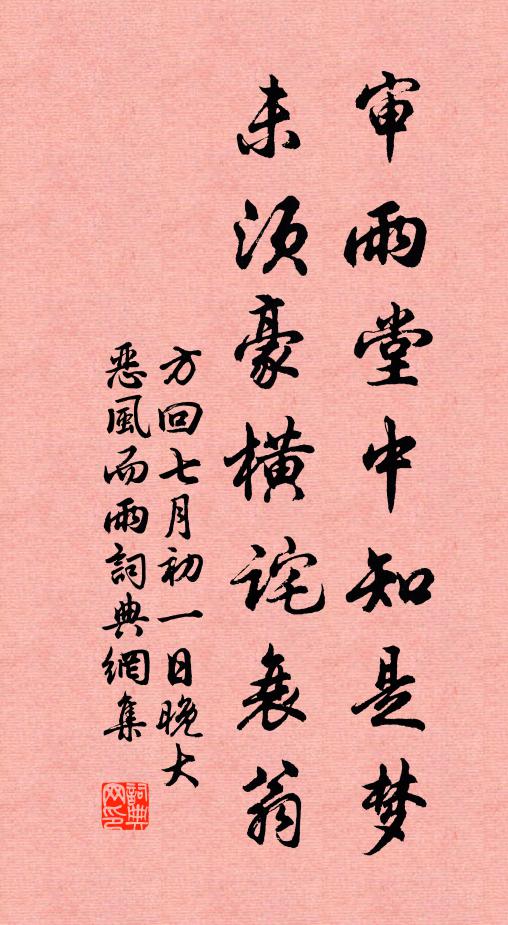 审雨堂中知是梦
未须豪横诧衰翁
方回七月初一日晚大
恶風而雨詞典網集
詞典网印